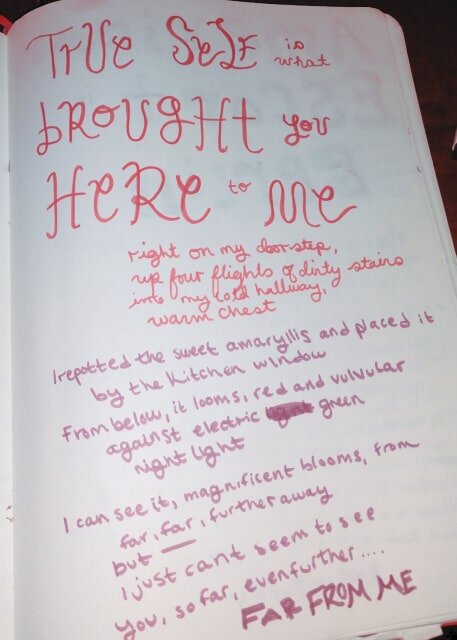 TRUE SELF is
what
bROUGHt you
HERE to ME
right on my doorstep,
up four flights of dirty stairs
into my cold hallway,
warm chest
I repotted the sweet amaryllis and placed it
by the kitchen window
From below, it looms, red and vulvular
against electric green
night light
I can see it, magnificent blooms, from
far, far, further away
but
I just can't seem to see
you, so far, even further....
FAR FROM ME